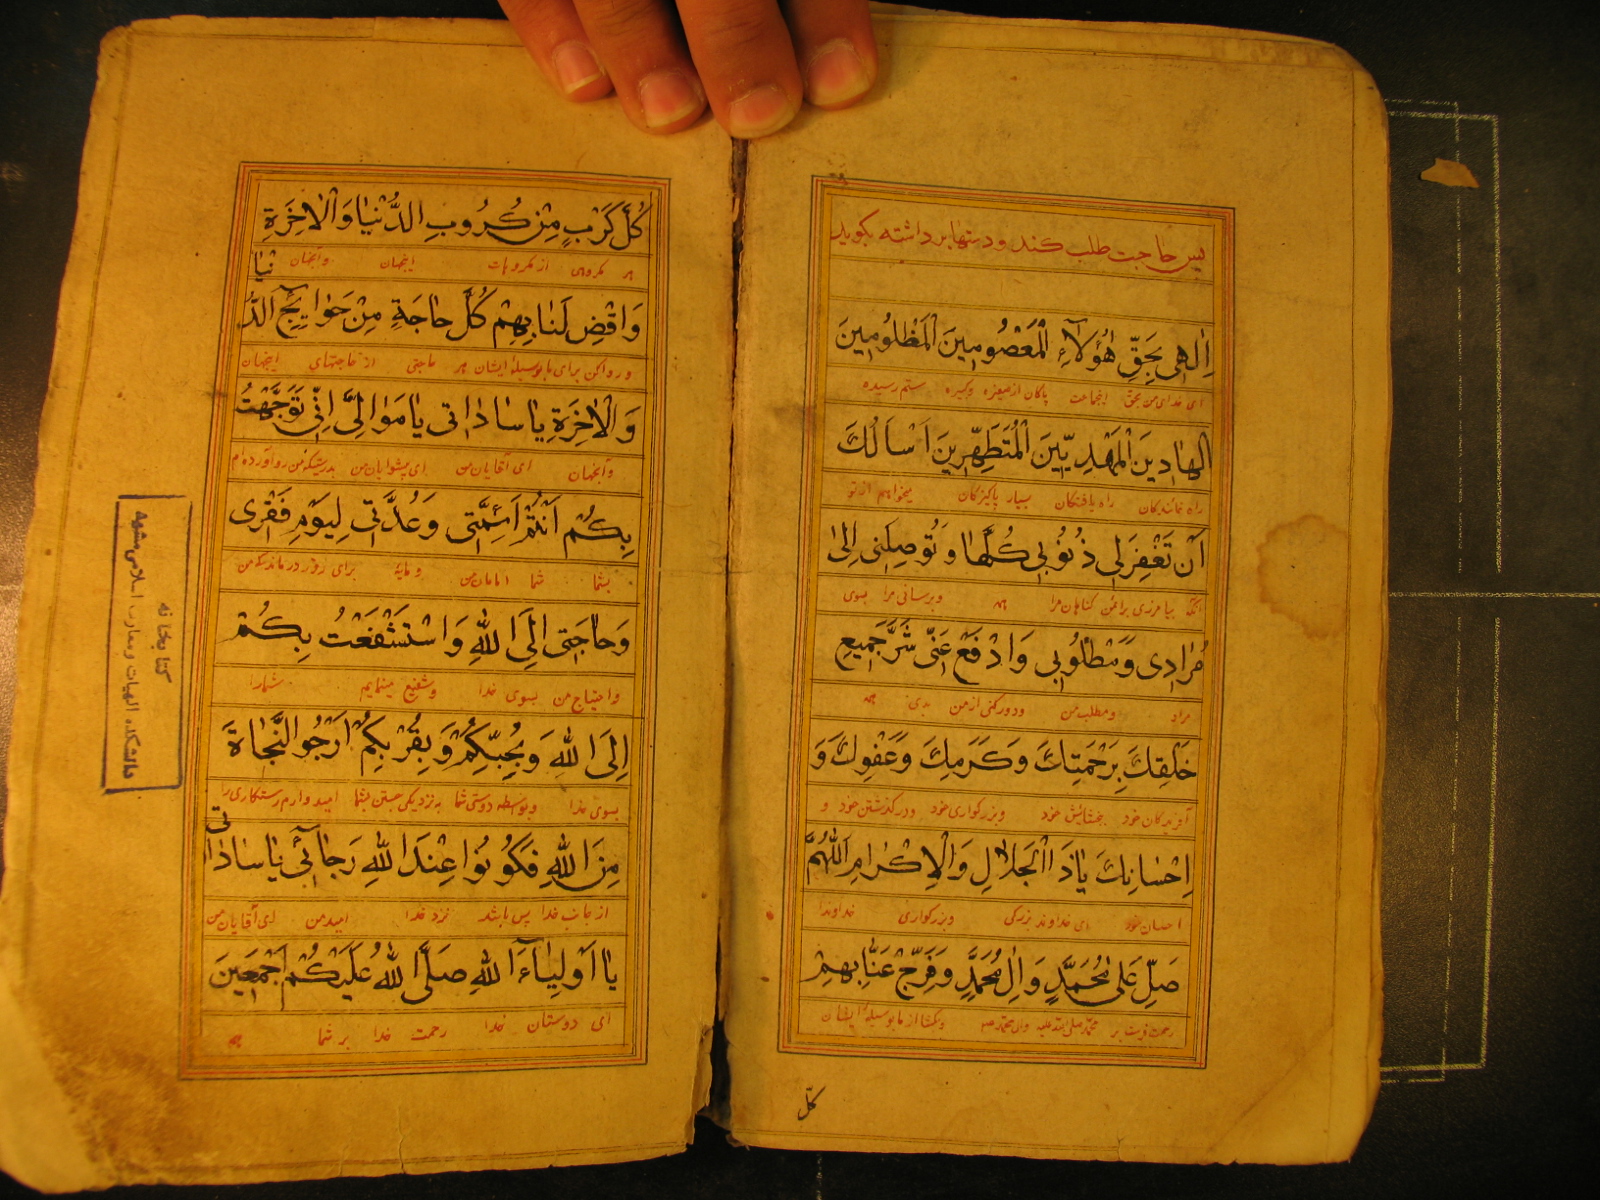 پس حاجت طلب کند و دستها برداشته بگوید
اِلٰهی بِحَقِّ هٰؤُلَآءِ الْمَعْصُومِینَ الْمَظْلُومِینَ
ای خدای من بحق اینجماعت پاکان از صغیره و کبیره ستم رسیده
الْهادِینَ الْمَهْدِیّینَ الْمُتَطَهِّرِینَ اَسْاَلُكَ
راه نمایندکان راه یافتکان بسیار پاکیزکان میخواهم از تو
اَنْ تَغْفِرَ لِی ذُنُوبِی کُلَّهٰا وَ تُوصِلَنِی اِلیٰ
آنکه بیامرزی برای من کناهان مرا همه و برسانی مرا بسوی
مُرٰادِی وَمَطْلُوبِی وَادْفَعْ عَنّی شَرَّ جَمِیعِ
مراد و مطلب من و دور کنی از من بدی همه
خَلْقِكَ بِرَحْمَتِكَ وَکَرَمِكَ وَعَفْوِكَ وَ
آفریدکان خود ببخشایش خود و بزرکواری خود و درکذشتن خود و
اِحْسٰانِكَ یٰاذَا الْجَلٰالِ وَالْاِکْرٰامِ اَللّٰهُمَّ
احسان خود ای خداوند بزرکی و بزرکواری خداوندا
صَلِّ عَلیٰ مُحَمَّدٍ وَاٰلِ مُحَمَّدٍ وَفَرِّجْ عَنّٰا بِهِمْ
رحمت فرست بر محمد صلی الله علیه وآل محمد و بکشا از ما بوسیلۀ ایشان
کلّ
کُلَّ کَرْبٍ مِنْ کُرُوبِ الدُّنْیٰا وَالْاٰخِرَةِ
هر مکروهی از مکروهات اینجهان وآنجهان
وَاقْضِ لَنٰا بِهِمْ کُلَّ حٰاجَةٍ مِنْ حَوٰایِجِ الدُّنْیٰا
و روا کن برای ما بوسیلۀ ایشان هر حاجتی از حاجتهای اینجهان
وَالْاٰخِرَةِ یٰا سٰادٰاتی یٰا مَوٰالِیَّ اِنّی تَوَجَّهْتُ
وآنجهان ای آقایان من ای پیشوایان من بدرستیکه من رو آورده‌ام
بِکُمْ اَنْتُمْ اَئِمَّتِی وَعُدَّتِی لِیَوْمِ فَقْرِی
بشما شما امامان من و مایۀ برای روز درماندکی من
وَحٰاجَتِی اِلَی اللّٰهِ وَاسْتَشْفَعْتُ بِکُمْ
و احتیاج من بسوی خدا و شفیع مینمایم شما را
اِلَی اللّٰهِ وَبِحُبِّکُمْ وَبِقُرْبِکُمْ اَرْجُو النَّجٰاةَ
بسوی خدا و بواسطه دوستی شما به نزدیکی جستن بشما امیدوارم رستکاری را
مِنَ اللّٰهِ فَکُونُوا عِنْدَ اللّٰهِ رَجٰائی یٰا سٰادٰاتی
از جانب خدا پس باشید نزد خدا امید من ای آقایان من
یٰا اَوْلِیٰآءَ اللّٰهِ صَلَّی اللّٰهُ عَلَیْکُمْ اَجْمَعِینَ
ای دوستان خدا رحمت خدا بر شما همه
کتابخانه
دانشکده الهیات ومعارف اسلامی مشهد